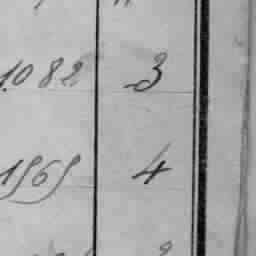 1082 3
1969 4